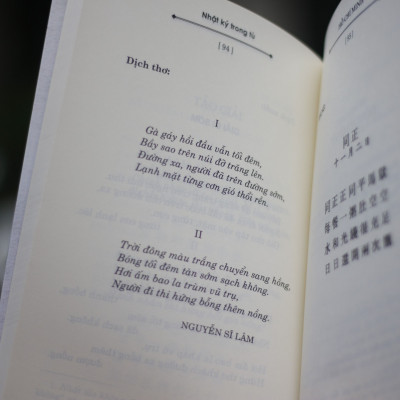 Nhật ký trong tù
[ 94 ]
Dịch thơ:
I
Gà gáy hồi đầu vẫn tối đêm,
Bầy sao trên núi đỡ trăng lên.
Đường xa, người đã trên đường sớm,
Lạnh mặt từng cơn gió thổi rền.
II
Trời đông màu trắng chuyển sang hồng,
Bóng tối đêm tàn sớm sạch không.
Hơi ấm bao la trùm vũ trụ,
Người đi thi hứng bỗng thêm nồng.
NGUYỄN SĨ LÂM
HỒ CHÍ MINH
同正
十一月二日
同正正同平馬獄
每餐一粥肚空空
水和光線很充足